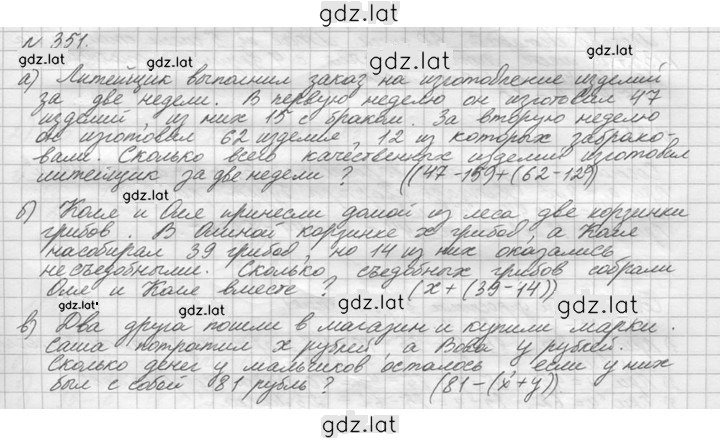 gdz.lat
№ 351.
gdz.lat
gdz.lat
gdz.lat
а) Литейщик выполнил заказ на изготовление изделий
за две недели. В первую неделю он изготовил 47
изделий, из них 15 с браком. За вторую неделю
он изготовил 62 изделия, 12 из которых забрако-
вали. Сколько всего качественных изделий изготовил
литейщик за две недели? ((47-15)+(62-12))
gdz.lat
gdz.lat
б) Коля и Оля принесли домой из леса две корзинки
грибов. В Олиной корзинке x грибов, а Коля
насобирал 39 грибов, но 14 из них оказались
несъедобными. Сколько съедобных грибов собрали
Оля и Коля вместе? (x+(39-14))
gdz.lat
gdz.lat
gdz.lat
в) Два друга пошли в магазин и купили марки.
Саша потратил x рублей, а Вова y рублей.
Сколько денег у мальчиков осталось, если у них
был с собой 81 рубль? (81-(x+y))
gdz.lat